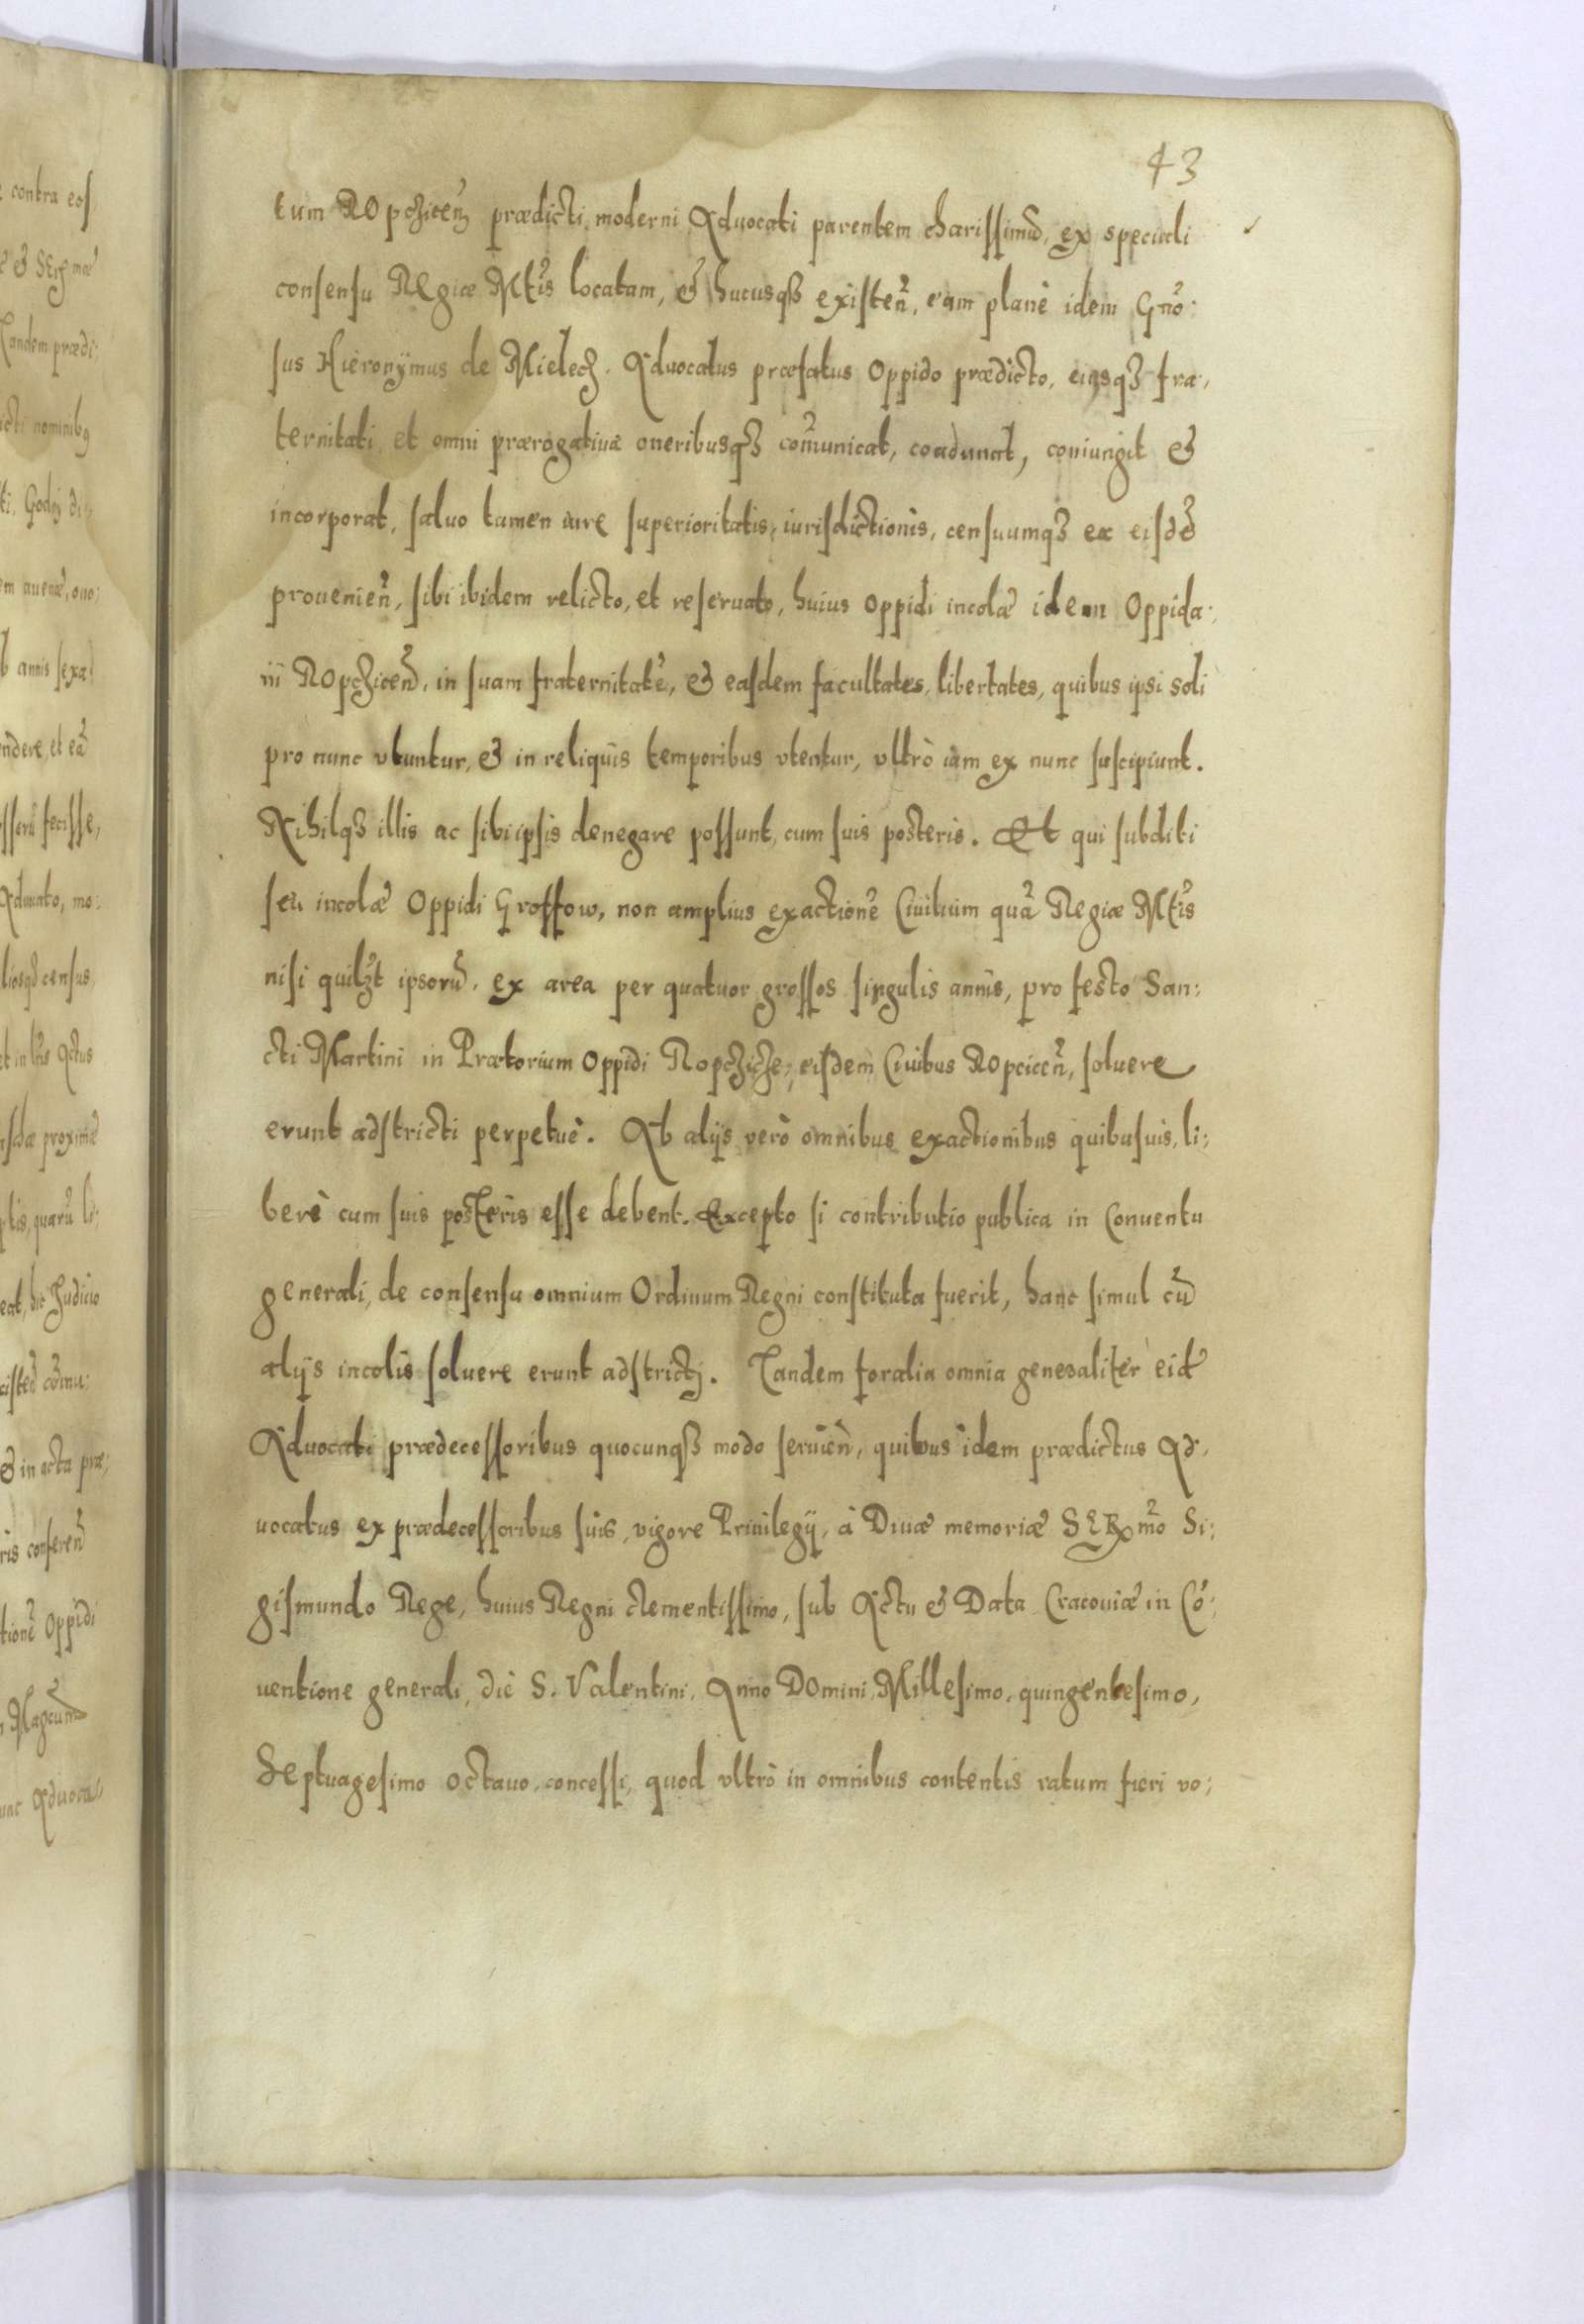 43
tum ROpcʒicen̄ prædicti moderni Aduocati parentem charissimū, ex speciali
consensu REgiæ Mt̃is locatam, & hucusqꝫ existeñ, eam planè idem Gño:
sus Hieronÿmus de Mielecʒ. Aduocatus præfatus Oppido prædicto, eiusqꝫ fra:
ternitati et omni prærogatiuæ oneribusqꝫ cõmunicat, coadunat, coniungit &
incorporat, saluo tamen iure superioritatis, iurisdictionis, censuumqꝫ ex eisdē
prouenieñ, sibi ibidem relicto, et reseruato, huius Oppidi incolæ idem Oppida:
ni ROpcʒiceñ, in suam fraternitatē, & easdem facultates, libertates, quibus ipsi soli
pro nunc vtuntur, & in reliquis temporibus vtentur, vltrò iam ex nunc suscipiunt.
Nihilqꝫ illis ac sibi ipsis denegare possunt, cum suis posteris. Et qui subditi
seu incolæ Oppidi Groffow, non amplius exactionē Ciuilium quā Regiæ Mt̃is
nisi quilꝫt ipsorū, ex area per quatuor grossos singulis annis, pro festo San:
cti Martini in Prætorium Oppidi Ropcʒicʒe, eisdem Ciuibus ROpciceñ, soluere
erunt adstricti perpetuè. Ab alijs verò omnibus exactionibus quibusuis, li:
berè cum suis posteris esse debent. Excepto si contributio publica in Conuentu
generali, de consensu omnium Ordinum Regni constituta fuerit, hanc simul cū
alijs incolis soluere erunt adstricti. Tandem foralia omnia generaliter eid̃
Aduocati prædecessoribus quocunqꝫ modo seruieñ, quibus idem prædictus Ad:
uocatus ex prædecessoribus suis, vigore Priuilegij, à Diuæ memoriæ SERx̃mo Si:
gismundo Rege, huius Regni clementissimo, sub Actu & Data Cracouiæ in Cō:
uentione generali, diè S. Valentini, Anno DOmini, Millesimo, quingentesimo,
Septuagesimo octauo, concessi, quod vltrò in omnibus contentis ratum fieri vo: